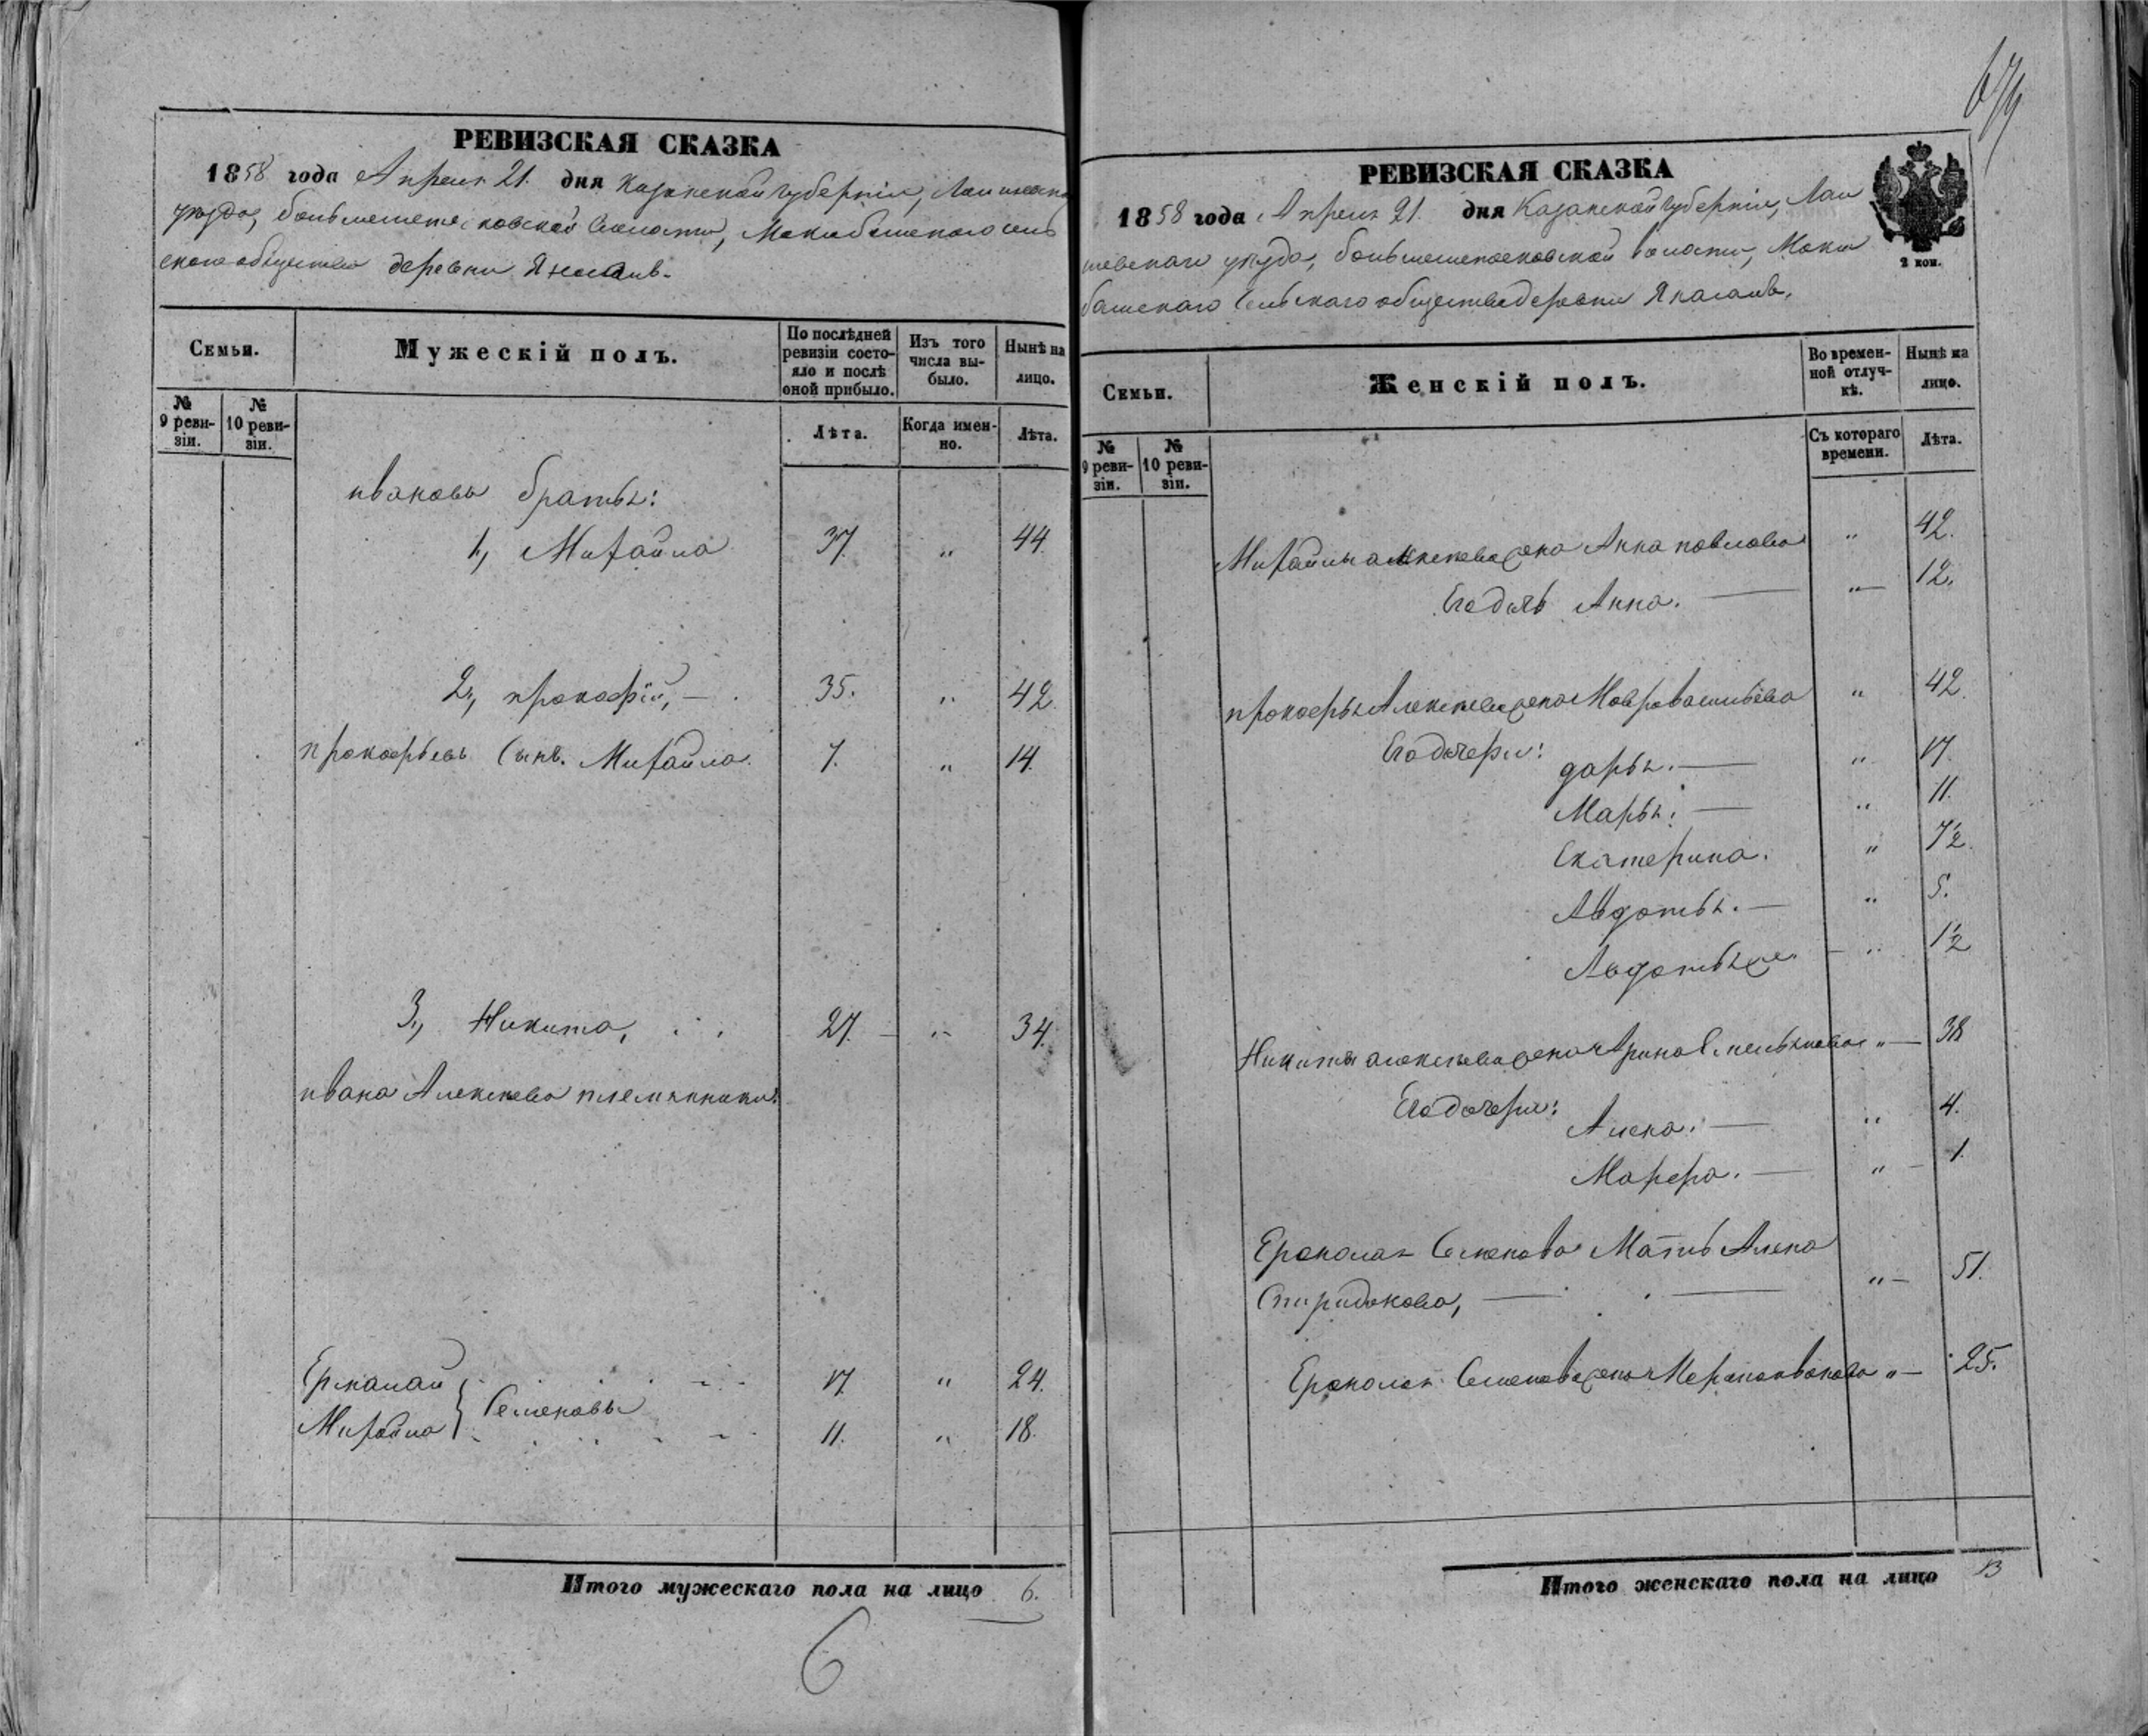 679
РЕВИЗСКАЯ СКАЗКА
1858 года Апреля 21. дня Казанской губернiи, Лаишевскаго
уезда, волости, Макабашскаго сель
скаго общества деревни Янасалъ.
Семьи.
Мужескiй полъ.
По послѣдней ревизiи состо-яло и послѣ оной прибыло.
Изъ того числа вы-было.
Нынѣ на лицо.
№ 9 реви-зiи.
№ 10 реви-зiи.
Лѣта.
Когда имен-но.
Лѣта.
ивановы братья:
1, Михайла 37. „ 44.
2, прокофiй, — 35. „ 42.
прокофьевъ Сынъ. Михайла. 7. „ 14.
3, Никита, 27. „ 34.
ивана Алексеева племянники:
Ермалай 17. „ 24.
Семеновы
Михайла 11. „ 18.
Итого мужескаго пола на лицо 6.
6
РЕВИЗСКАЯ СКАЗКА
1858 года Апреля 21. дня Казанской губернiи, Лаи
шевскаго уезда, волости, Мака
башскаго Сельскаго общества деревни Янасалъ.
2 коп.
Семьи.
Женскiй полъ.
Во времен-ной отлуч-кѣ.
Нынѣ на лицо.
№ 9 реви-зiи.
№ 10 реви-зiи.
Съ котораго времени.
Лѣта.
Михайлы алексеева жена Анна павлова „ 42.
Его дочь Анна. — „ 12.
прокофья Алексеева жена Мавра васильева „ 42.
Его дочери: дарья. — „ 17.
Марья. — „ 11.
Екатерина. „ 7½.
Авдотья. — „ 5.
Авдотья же. — „ 1½
Никиты алексеева жена Арина Емельянова „ — 38
Его дочери: Алена. — „ 4.
Марфа. — „ 1.
Ермолая Семенова Мать Алена
Спиридонова, — „ — 51.
Ермолая Семенова жена иванова „ — 25.
Итого женскаго пола на лицо 13